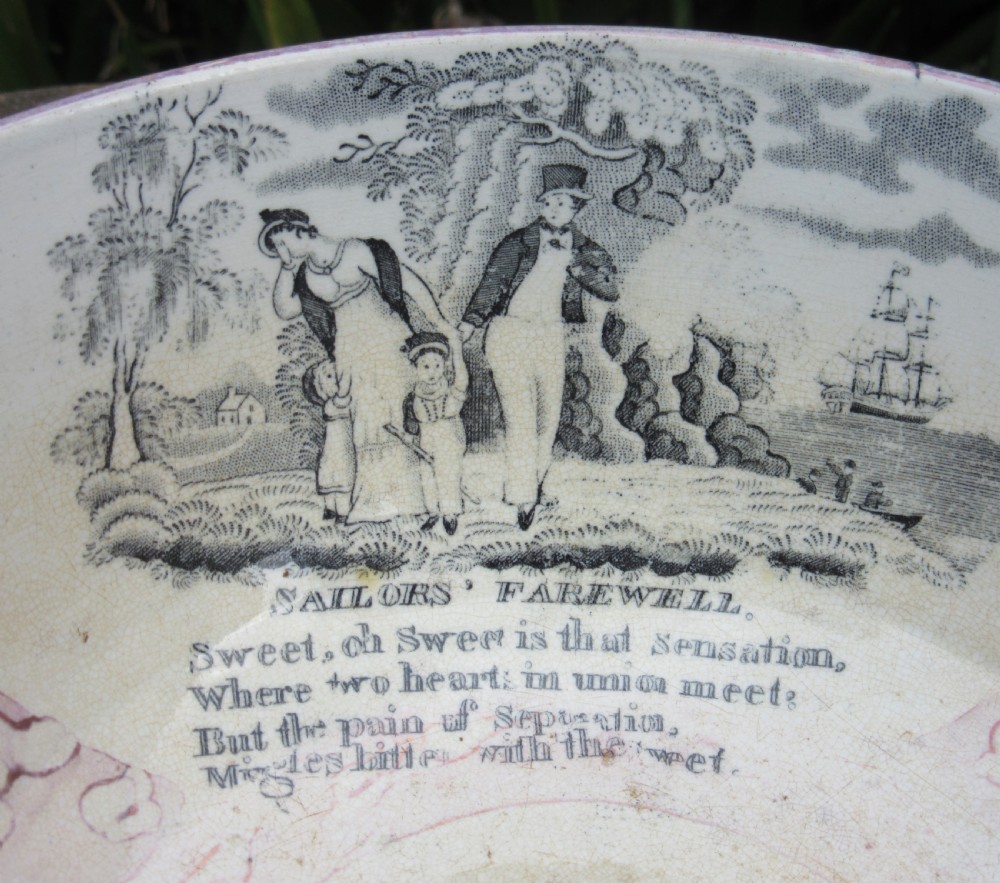 SAILORS' FAREWELL.
Sweet, oh Sweet is that sensation,
Where two hearts in union meet;
But the pain of Separation,
Mingles bitter with the sweet.